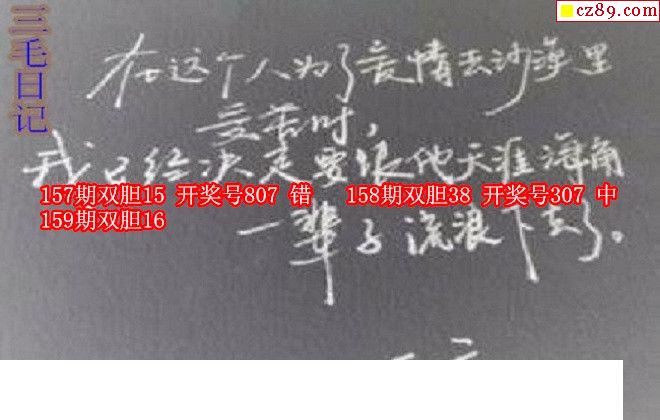 cz89.com
三毛日记
在这个人为了爱情去沙漠里
受苦时，
我已经决定要跟他天涯海角
157期双胆15 开奖号807 错 158期双胆38 开奖号307 中
159期双胆16
一辈子流浪下去了。